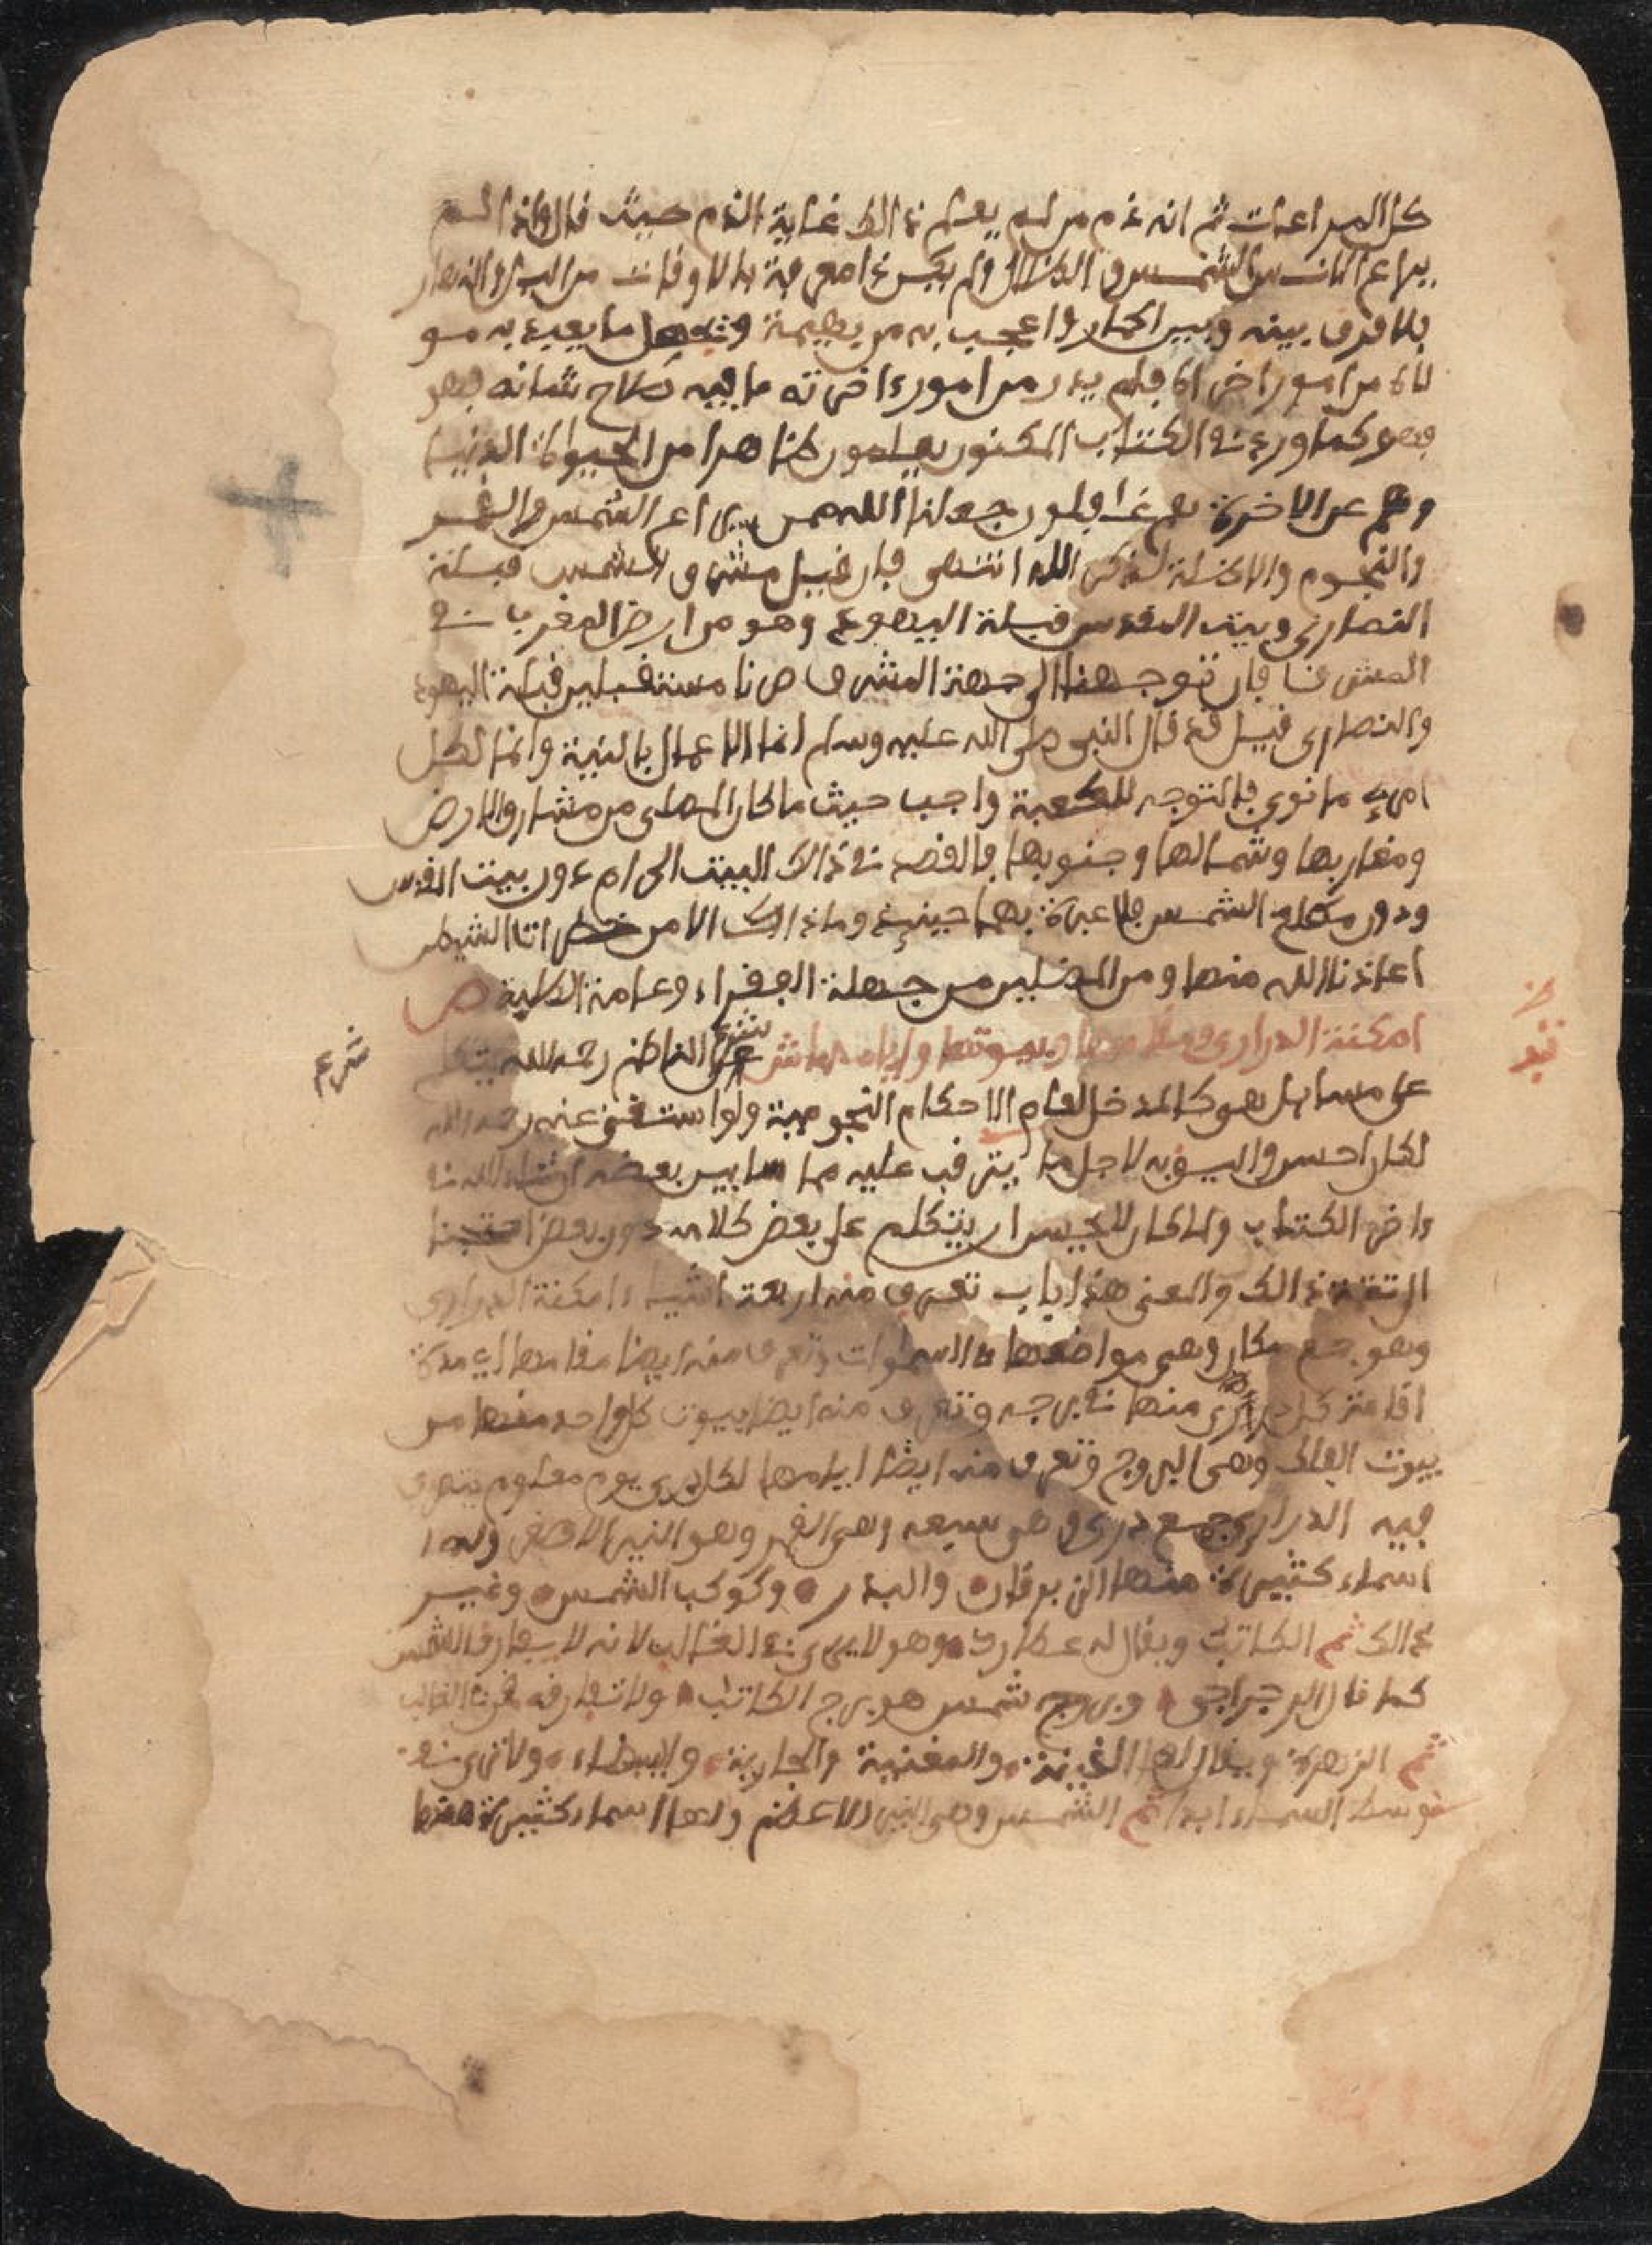 كل المراعات ثم انه ذم من لم يعلم ذالك غاية الذم حيث قال واذا لم
يراع الانسان الشمس والظلال ولم يكن ذا معرفة بالاوقات من اليل والنهار
فلا فرق بينه وبين الحمار واعجب به من بهيمة ما يعيد به مو
لاه من امور اخراه فلم يدر من امور ءاخرته ما فيه صلاح شانه فهو
فهو كما ورد في الكتاب المكنون يعلمون ظاهرا من الحيوة الدنيا
وهم عن الاخرة هم غافلون جعلنا الله ممن يراع الشمس والقمر
والنجوم والاظلة لذكر الله انتهى فإن قيل مشرق الشمس قبلة
النصارى وبيت المقدس قبلة اليهود وهو من ارض المغرب في
المشرق فان توجهنا الى جهة المشرق صرنا مستقبلين قبلة اليهود
والنصارى قيل قد قال النبي صلى الله عليه وسلم انما الاعمال بالنية وانما لكل
امرء ما نوى فالتوجه للكعبة واجب حيث ما كان المصلى من مشارق الارض
ومغاربها وشمالها وجنوبها فالقصد في ذالك البيت الحرام دون بيت القدس
ودون مطلع الشمس فلا عبرة بهما حينئذ وما ذالك الا من الشيطن
اعاذنا الله منها ومن المضلين من جهلة الفقراء وعامة الطلبة ص
امكنة الدرارى ومقامها وبيوتها وايامها ش شرع الناظم رحمه الله يتكلم
شرع
على مسايل هو كالمدخل لعلم الاحكام النجومية ولو استغنى عنه رحمه الله
لكان احسن واليق به لاجل ما يترقب عليه مما سابين بعضه ان شاء الله في
ءاخر الكتاب ولما كان لا يحسن ان يتكلم على بعض كلامه دون بعض احتجنا
الى تتمة ذالك والمعنى هذا باب تعرف منه اربعة اشياء امكنة الدرارى
وهو جمع مكان وهى مواضعها من السماوات وتعرف منه ايضا مقامها اي مدة
اقامة كل دراري منها في برجه وتعرف منه ايضا بيوت كل واحد منها من
بيوت الفلك وهى البروج وتعرف منه ايضا ايامها لكل دري يوم معلوم يتصرف
فيه الدرارى جمع درى وهى سبعة وهى القمر وهو النير الاصغر وله
اسماء كثيرة منها الزبرقان والبدر وكوكب الشمس وغير
ذالك ثم الكاتب ويقال له عطارد وهو لا يرى في الغالب لانه لا يفارق الشمس
كما قال الجراجى وبروج شمس هو برج الكاتب ولا تفارقه في الغالب
ثم الزهرة ويقال لها والمغنية والجارية والبيضاء ولا ترى في
وسط السماء ابدا ثم الشمس وهى النير الاعظم ولها اسماء كثيرة منها